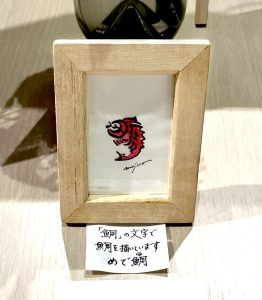 「鯛」の文字で
鯛を描いています
めで鯛